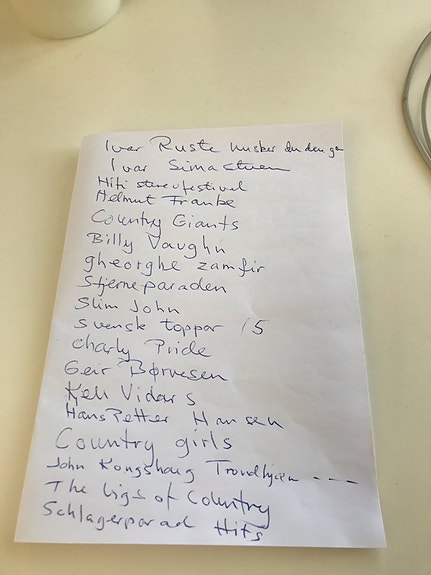 Ivar Ruste husker du den ga
Ivar Simastuen
Hifi stereofestival
Helmut Franke
Country Giants
Billy Vaughn
gheorghe zamfir
Stjerneparaden
Slim John
Svensk toppar 15
Charly Pride
Geir Børresen
Keli Vidars
Hans Petter Hansen
Country girls
John Kongshaug Trondhjem ---
The of Country
Schlagerparad Hits